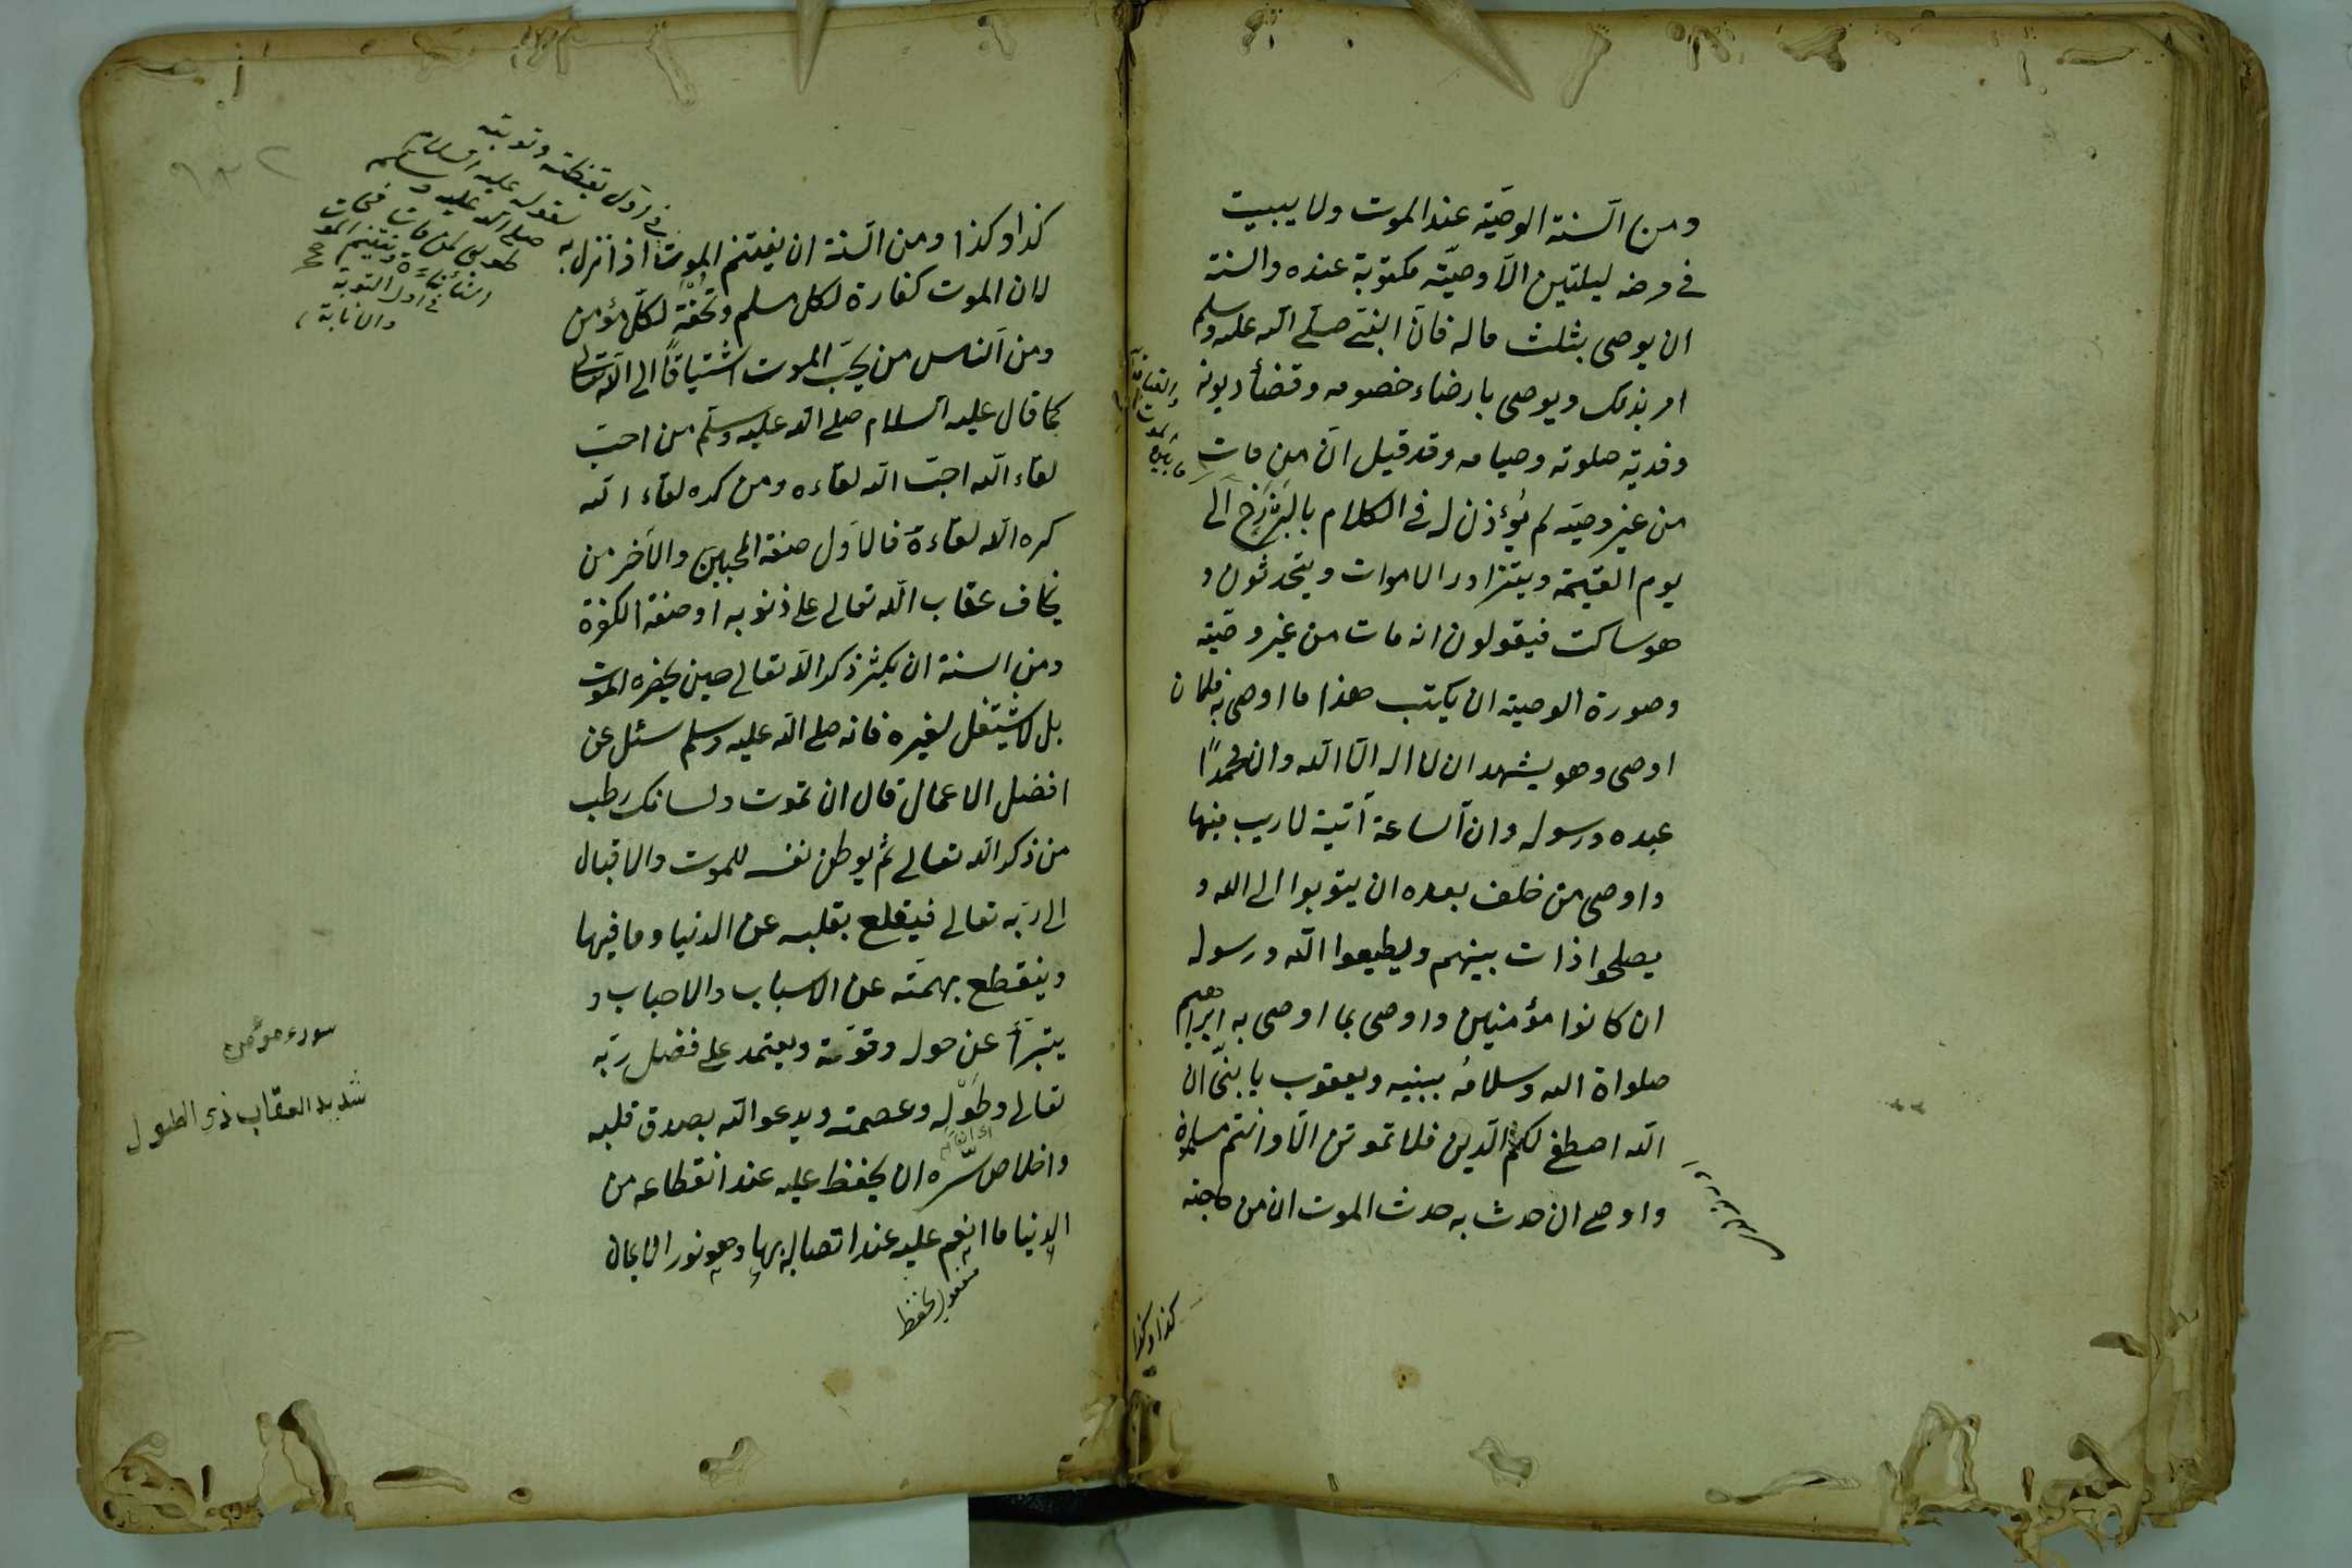 ومن السنة الوصيّة عند الموت ولا يبيت
في مرضه ليلتين الّا وصيّته مكتوبة عنده والسنة
ان يوصى بثلث ماله فانّ النبى صلّى الله عليه وسلم
امر بذلك ويوصى بارضاء خصومه وقضأ ديونه
وفدية صلوته وصيامه وقد قيل انّ من مات
من غير وصيّة لم يُؤذن له فى الكلام بالبَرْزَخ الى
يوم القيمة ويتزاور الاموات ويتحدثون و
هو ساكت فيقولون انه مات من غير وصيّة
وصورة الوصية ان يكتب هذا ما اوصى به فلان
اوصى وهو يشهد ان لا اله الّا الله وان محمدًا
عبده ورسوله وان الساعة آتية لا ريب فيها
واوصى من خلف بعده ان يتوبوا الى الله و
يصلحوا ذات بينهم ويطيعوا الله ورسوله
ان كانوا مؤمنين واوصى بما اوصى به ابراهيم
صلواة الله وسلامُه ببنيه ويعقوب يا بنىّ ان
الله اصطفى لكم الدين فلا تموتنّ الّا وانتم مسلمون
واوصى ان حدث به حدث الموت ان من حاجته
كذا وكذا
كذا وكذا ومن السنة ان يغتنم الموت اذا نزل به
لان الموت كفارة لكل مسلم وتُحفة لكلّ مؤمن
ومن الناس من يحبّ الموت اشتياقًا الى الله تعالى
كما قال عليه السلام صلى الله عليه وسلّم من احبّ
لقاء الله احبّ الله لقاءه ومن كره لقاء الله
كره الله لقاءه فالاوّل صفة المحبين والآخر من
يخاف عقاب الله تعالى على ذنوبه او صفة الكفرة
ومن السنة ان يكثر ذكر الله تعالى حين يحضره الموت
بل لا يشتغل لغيره فانه صلى الله عليه وسلم سئل عن
افضل الاعمال قال ان تموت ولسانك رطب
من ذكر الله تعالى ثم يوطن نفسه للموت والاقبال
الى ربّه تعالى فيقلع بقلبه عن الدنيا وما فيها
وينقطع بهمّته عن الاسباب والاحباب و
يتبرأ عن حوله وقوّته ويعتمد على فضل ربّه
تعالى وطَوْله وعصمته ويدعو الله بصدق قلبه
واخلاص سرّه ان يحفظ عليه عند انقطاعه من
الدنيا ما انعم عليه عند اتصاله بها وهو نور الايمان
مفعول يحفظ
فى اول يقظته وتوبته
لقوله عليه السلام
صلى الله عليه وسلم
طوبى لمن مات
فى اول التوبة
والانابة
شديد العقاب ذى الطول